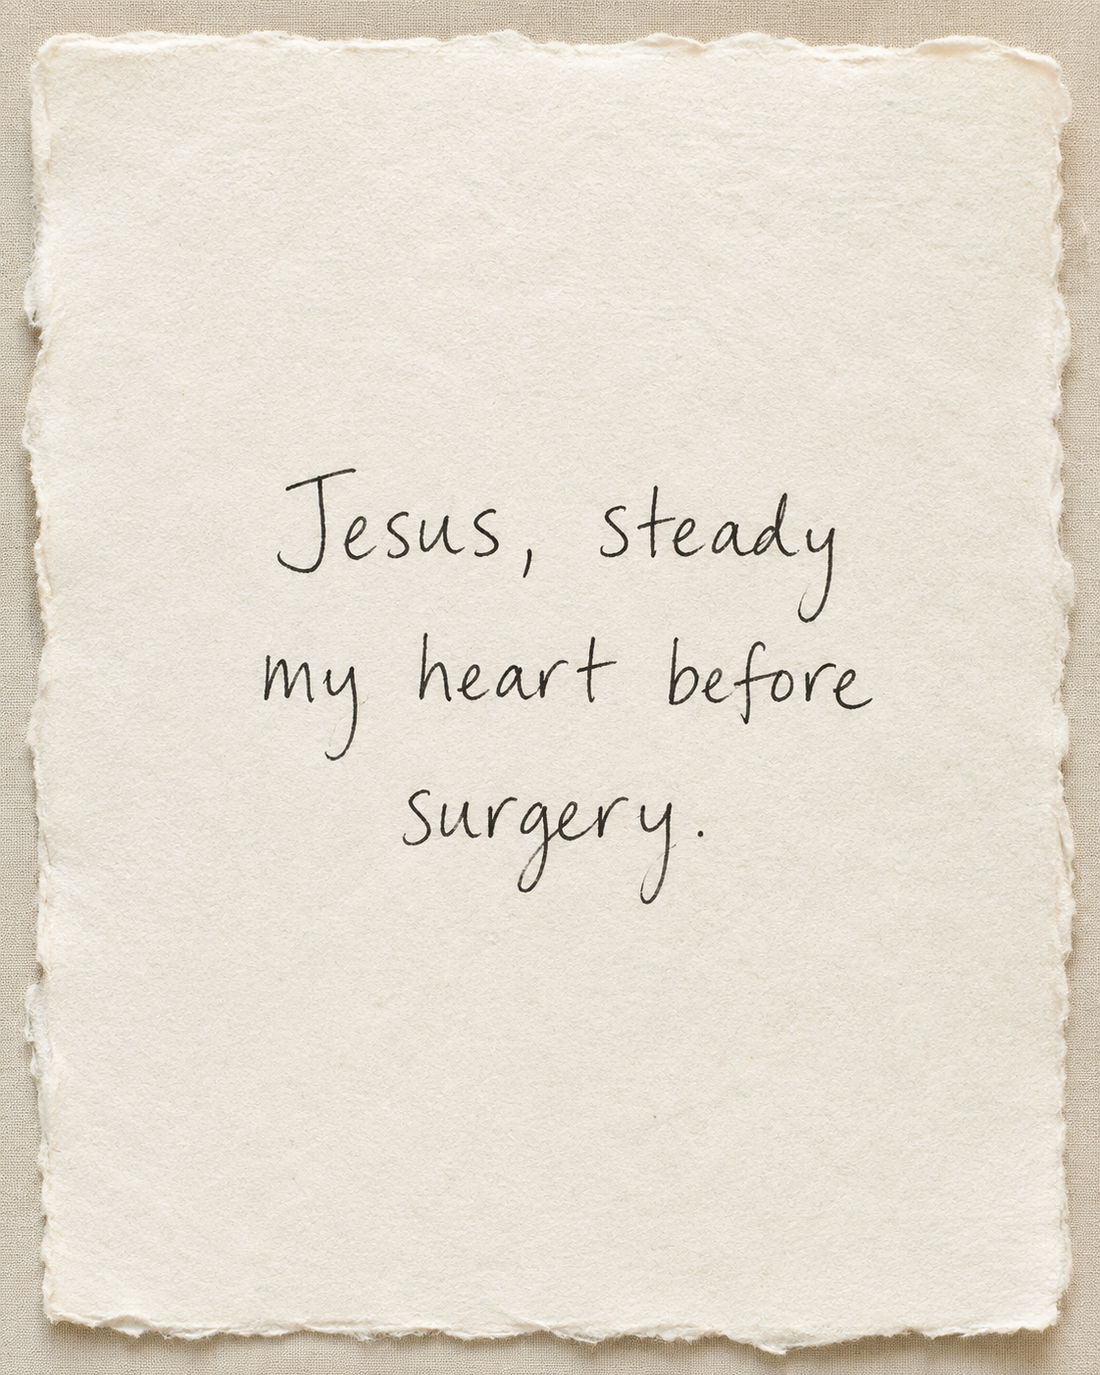 Jesus, steady
my heart before
surgery.